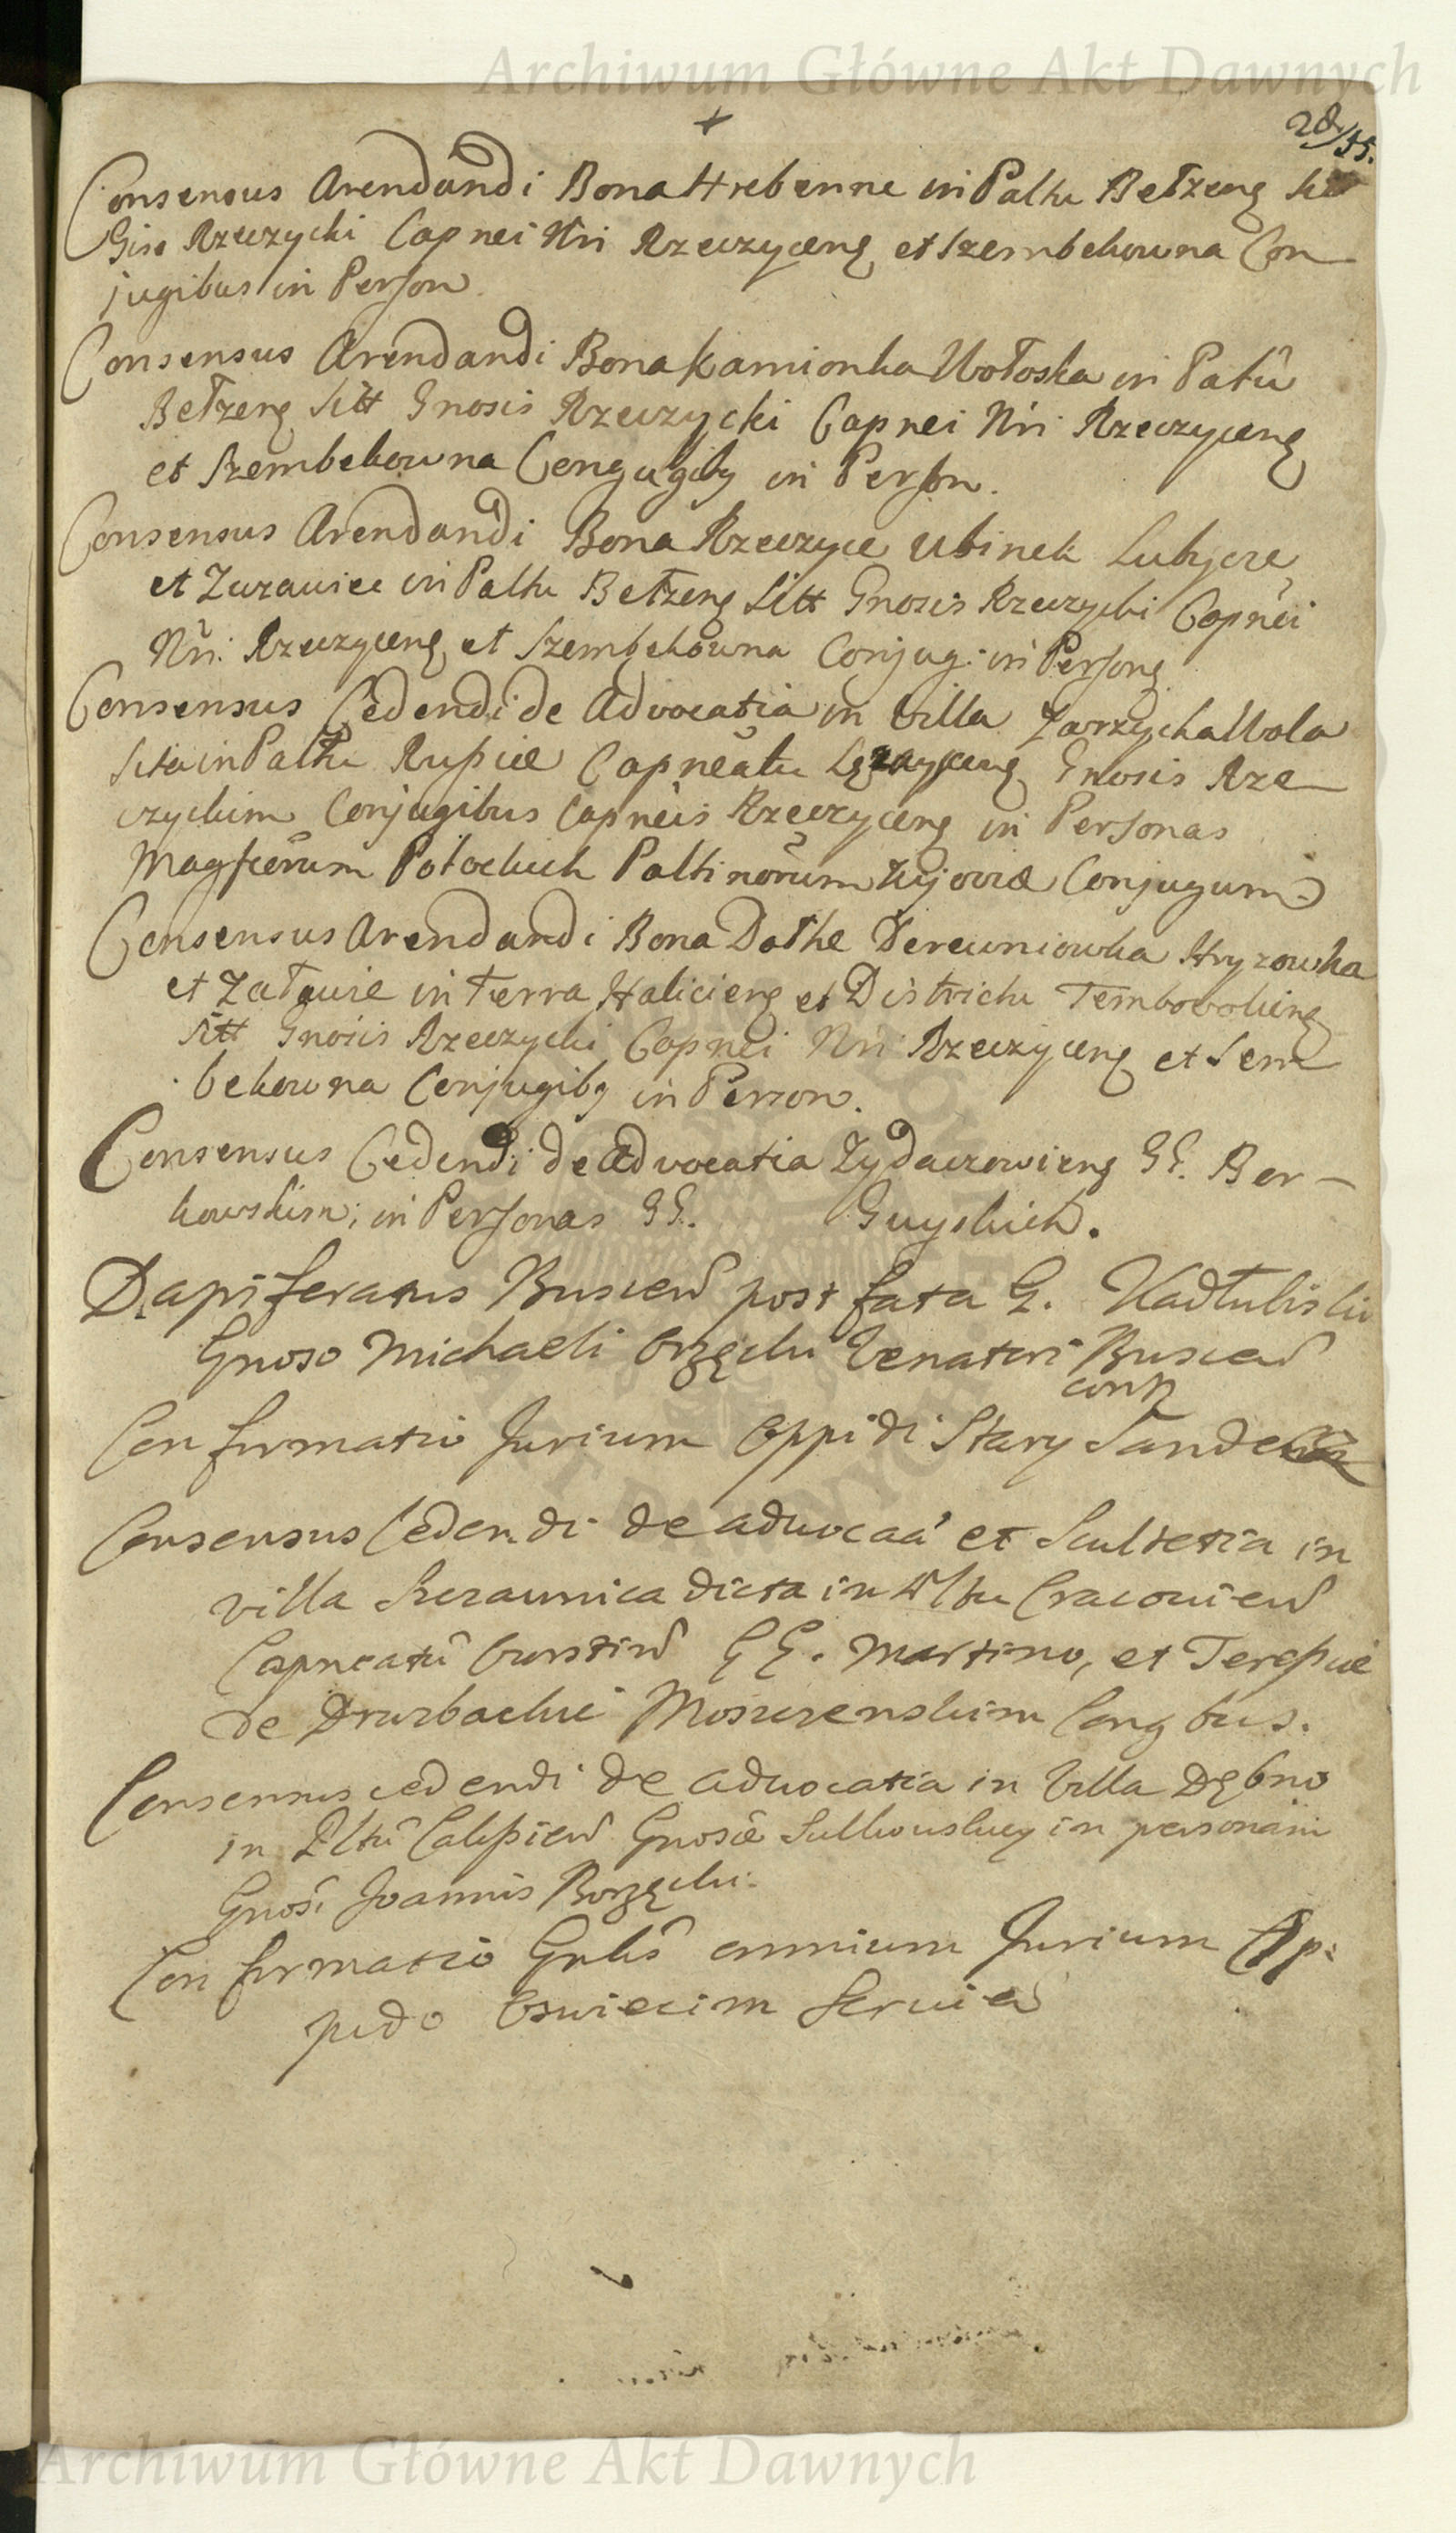 Archiwum Główne Akt Dawnych
28/55.
Consensus Arendandi Bona Hrebenne in Palttu Bełzens
Gsis Rzeczycki Capnei Nri Rzeczycens et Szembekowna Con
jugibus in Person
Consensus Arendandi Bona Kamionka Wołoska in Patû
Bełzens Sitt Gnosis Rzeczycki Capnei Nri Rzeczycens
et Szembekowna Congugibs in Person.
Consensus Arendandi Bona Rzeczyce Ubinek Lubycze
et Zurawice in Palttu Bełzens Sitt Gnosis Rzeczycki Capnei
Nri. Rzeczycens et Szembekowna Conjug: in Persons
Consensus Cedendi de Advocatia in Villa Zarzycka Wola
Sita in Palttu Russice Capneatu Gnosis Rze
czyckim Conjugibus Capneis Rzeczycens in Personas
Magficorum Potockich Paltinorum Kijoviæ Conjugum
Consensus Arendandi Bona Dołhe Derewniowka Hryzowka
et Załawie in Terra Haliciens et Districtu Tembowoliens
Sitt Gnosis Rzeczycki Capnei Nri Rzeczycens et Sem
bekowna Conjugibs in Person.
Consensus Cedendi de Advocatia Zydaczowiens GG. Bor-
kowskim; in Personas GG. Guyskich.
Dapiferatus Buscen post fata G. Kadłubiski
Gnoso Michaeli Orzęcki Venatori Buscen
Confirmatio Jurium Oppidi Stary Sandecz
Consensus Cedendi de advocaa et Scultetia in
villa dicta in Plttu Cracovien
Capneatû GG. Martino, et Teressiæ
de Drurbachie Congbus.
Consensus cedendi de advocatia in Villa Dębno
in Plttû Calissien Gnosæ Sulkowskiey in personam
Gnosi Joannis Borzęcki.
Confirmatio Gnlis omnium Jurium Op-
pido Oswiecim Servien
Archiwum Główne Akt Dawnych